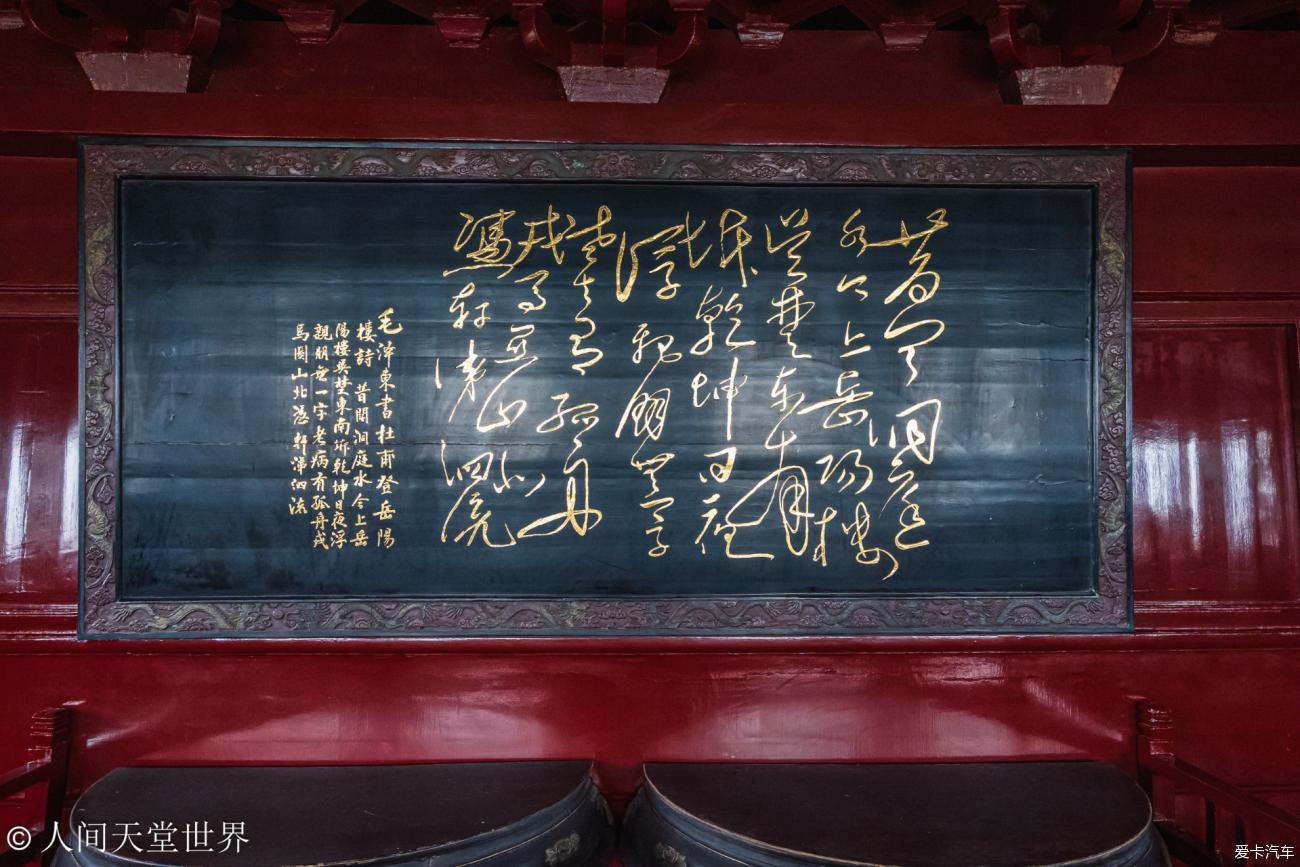 昔闻洞庭
水今上岳阳楼
吴楚东南
坼乾坤日夜
浮 亲朋无一字
老去有孤舟
戎马关山北
憑轩涕泗流
毛澤東書杜甫登岳陽
樓詩 昔聞洞庭水今上岳
陽樓吳楚東南坼乾坤日夜浮
親朋無一字老病有孤舟戎
馬關山北憑軒涕泗流
© 人间天堂世界
爱卡汽车